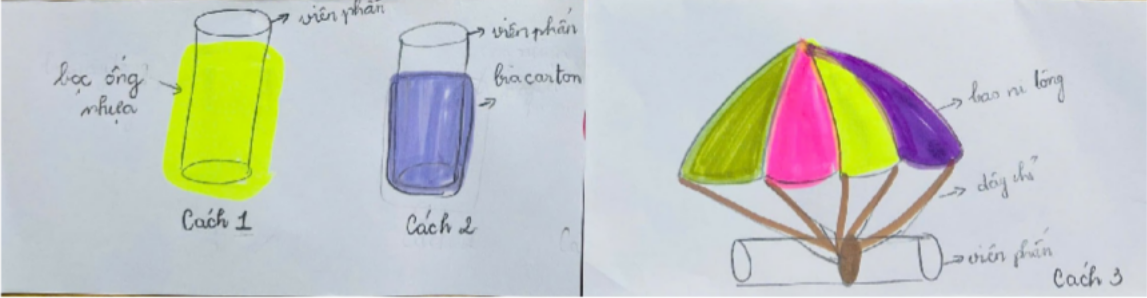 viên phấn
bọc ống
nhựa
Cách 1
viên phấn
bìa carton
Cách 2
bao ni lông
dây chỉ
viên phấn
Cách 3